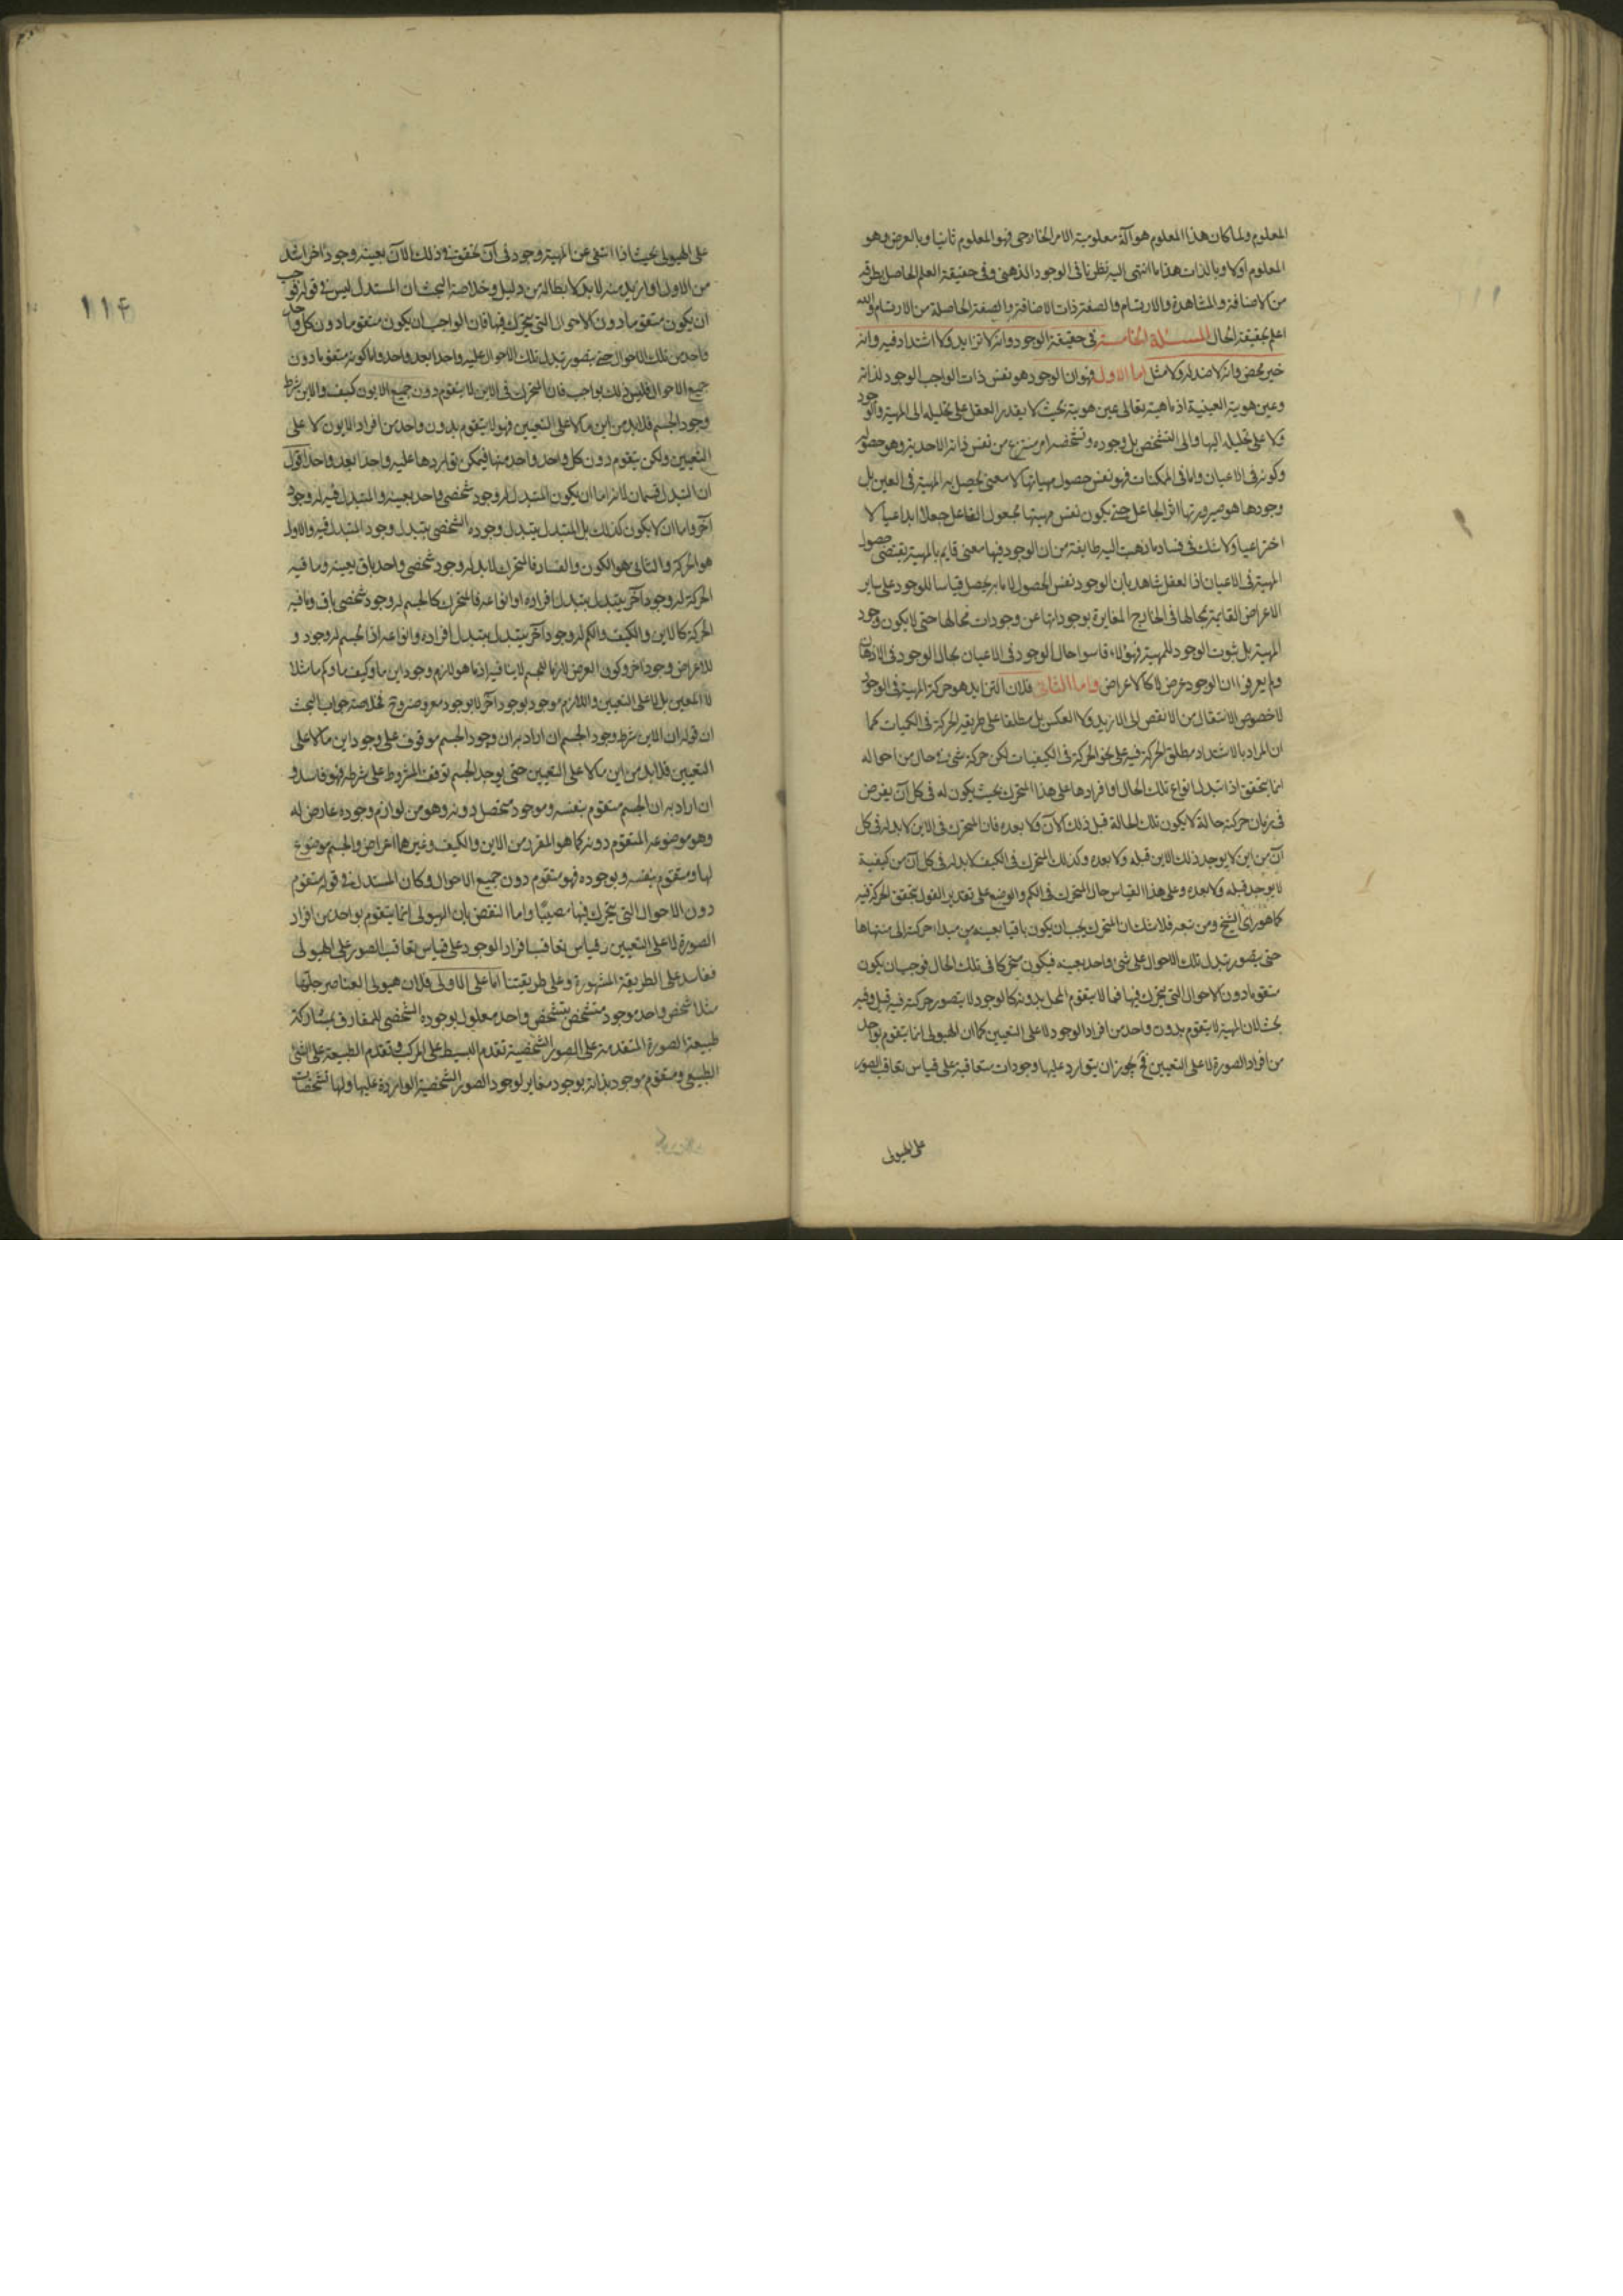 المعلوم ولما كان هذا المعلوم هو آلة معلومية الامر الخارجى فهو المعلوم ثانيا وبالعرض وهو
المعلوم اولا وبالذات هذا ما انتهى اليه نظرنا فى الوجود الذهنى وفى حقيقة العلم الحاصل بطرقه
من الاضافة والمشاهدة والارتسام والصفة ذات الاضافة والصفة الحاصلة من الارتسام والله
اعلم بحقيقة الحال المسئلة الخامسة فى حقيقة الوجود وانه لا تزايد ولا اشتداد فيه وانه
خير محض وانه لا ضد له ولا مثل اما الاول فهو ان الوجود هو نفس ذات الواجب الوجود لذاته
وعين هويته العينية اذ ماهيته تعالى عين هويته بحيث لا يقدر العقل على تحليله الى المهية والوجود
ولا على تحليله اليها والى التشخص بل وجوده وتشخصه امر منتزع من نفس ذاته الاحدية وهو حصوله
وكونه فى الاعيان واما فى الممكنات فهو نفس حصول مهياتها لا معنى يحصل به المهية فى العين بل
وجودها هو صيرورتها اثر الجاعل حتى يكون نفس مهيتها مجعول الفاعل جعلا ابداعيا لا
اختراعيا ولا شك فى فساد ما ذهبت اليه طايفة من ان الوجود فيها معنى قايم بالمهية يقتضى حصول
المهية فى الاعيان اذ العقل شاهد بان الوجود نفس الحصول لا ما به يحصل قياسا للوجود على ساير
الاعراض القايمة بمحالها فى الخارج المغايرة بوجوداتها عن وجودات محالها حتى لا يكون وجود
المهية بل ثبوت الوجود للمهية فهؤلاء قاسوا حال الوجود فى الاعيان بحال الوجود فى الاذهان
ولم يعرفوا ان الوجود عرض لا كالاعراض واما الثانى فلان التزايد هو حركة المهية فى الوجود
لا خصوص الانتقال من الانقص الى الازيد ولا العكس بل مطلقا على طريقة الحركة فى الكميات كما
ان المراد بالاشتداد مطلق الحركة فيه على نحو الحركة فى الكيفيات لكن حركة شىء فى حال من احواله
انما يتحقق اذا تبدل انواع تلك الحال او افرادها على هذا المتحرك بحيث يكون له فى كل آن يفرض
فى زمان حركته حالة لا يكون تلك الحالة قبل ذلك الآن ولا بعده فان المتحرك فى الاين لا بد له فى كل
آن من اين لا يوجد ذلك الاين قبله ولا بعده وكذلك المتحرك فى الكيف لا بد له فى كل آن من كيفية
لا يوجد قبله ولا بعده وعلى هذا القياس حال المتحرك فى الكم والوضع على تقدير القول بتحقق الحركة فيه
كما هو راى الشيخ ومن تبعه فلا شك ان المتحرك يجب ان يكون باقيا بعينه من مبداء حركته الى منتهاها
حتى يتصور تبدل تلك الاحوال على شىء واحد بعينه فيكون متحركا فى تلك الحال فوجب ان يكون
متقوما دون الاحوال التى يتحرك فيها فما لا يتقوم المحل بدونه كالوجود لا يتصور حركته فيه قيل وفيه
بحث لان المهية لا يتقوم بدون واحد من افراد الوجود لا على التعيين كما ان الهيولى انما يتقوم بواحد
من افراد الصورة لا على التعيين فح يجوز ان يتوارد عليها وجودات متعاقبة على قياس تعاقب الصور
على الهيولى
١١٤
على الهيولى بحيث اذا انتفى عن المهية وجود فى آن تحقق فى ذلك الآن بعينه وجود اخر اشد
من الاول او ازيد منه لا بد لابطاله من دليل وخلاصة البحث ان المستدل ليس فى قوله فوجب
ان يكون متقوما دون الاحوال التى يتحرك فيها فان الواجب ان يكون متقوما دون كل واحد
واحد من تلك الاحوال حتى يتصور تبدل تلك الاحوال عليه واحدا بعد واحد واما كونه متقوما دون
جميع الاحوال فليس ذلك بواجب فان المتحرك فى الاين لا يتقوم دون جميع الايون كيف والاين شرط
وجود الجسم فلا بد من اين ما لا على التعيين فهو لا يتقوم بدون واحد من افراد الايون لا على
التعيين ولكن يتقوم دون كل واحد واحد منها فيمكن تواردها عليه واحدا بعد واحد اقول
ان التبدل قسمان لانه اما ان يكون المتبدل له وجود شخصى واحد بعينه والمتبدل فيه له وجود
آخر واما ان لا يكون كذلك بل المتبدل يتبدل وجوده الشخصى بتبدل وجود المتبدل فيه والاول
هو الحركة والثانى هو الكون والفساد فالمتحرك لا بد له وجود شخصى واحد باق بعينه وما فيه
الحركة له وجود آخر يتبدل بتبدل افراده او انواعه فالمتحرك كالجسم له وجود شخصى باق وما فيه
الحركة كالاين والكيف والكم له وجود آخر يتبدل بتبدل افراده وانواعه اذ الجسم له وجود و
للاعراض وجود اخر وكون العرض لازما للجسم لا ينافيه اذ ما هو لازم وجود اين ما وكيف ما وكم ما مثلا
لا المعين بل لا على التعيين واللازم موجود بوجود آخر لا بوجود معروضه وح فخلاصة جواب البحث
ان قوله ان الاين شرط وجود الجسم ان اراد به ان وجود الجسم موقوف على وجود اين ما لا على
التعيين فلا بد من اين ما لا على التعيين حتى يوجد الجسم توقف المشروط على شرطه فهو فاسد و
ان اراد به ان الجسم متقوم بنفسه وموجود متحصل دونه وهو من لوازم وجوده عارض له
وهو موضوعه المتقوم دونه كما هو المقرر من الاين والكيف وغيرهما اعراض والجسم موضوع
لها ومتقوم بنفسه وبوجوده فهو متقوم دون جميع الاحوال وكان المستدل فى قوله متقوم
دون الاحوال التى يتحرك فيها مصيبا واما النقض بان الهيولى انما يتقوم بواحد من افراد
الصورة لا على التعيين وقياس تعاقب افراد الوجود على قياس تعاقب الصور على الهيولى
ففاسد على الطريقة المشهورة وعلى طريقتنا اما على الاولى فلان هيولى العناصر جلها
مثلا شخص واحد موجود متشخص بتشخص واحد معلول بوجوده الشخصى للمفارق بمشاركة
طبيعة الصورة المتقدمة على الصور الشخصية تقدم البسيط على المركب وتقدم الطبيعة على الشىء
الطبيعى ومتقوم موجود بذاته بوجود مغاير لوجود الصور الشخصية الواردة عليها ولها تشخصات